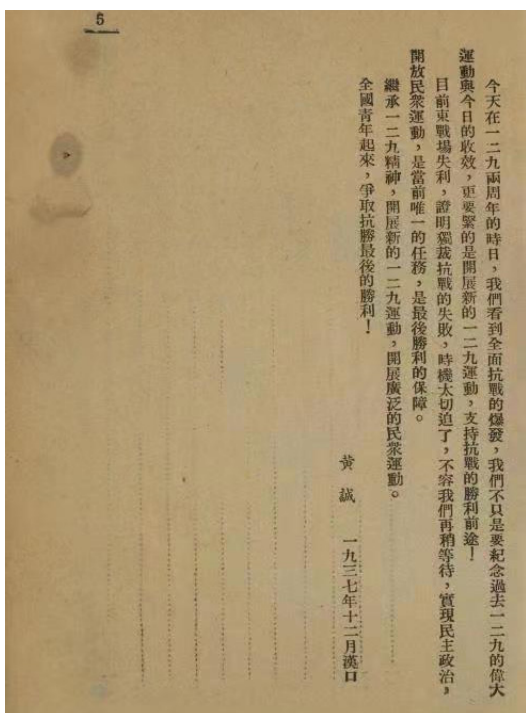 5
今天在一二九兩周年的時日，我們看到全面抗戰的爆發，我們不只是要紀念過去一二九的偉大
運動與今日的收效，更要緊的是開展新的一二九運動，支持抗戰的勝利前途！
目前東戰場失利，證明獨裁抗戰的失敗，時機太切迫了，不容我們再稍等待，實現民主政治，
開放民衆運動，是當前唯一的任務，是最後勝利的保障。
繼承一二九精神，開展新的一二九運動，開展廣泛的民衆運動。
全國青年起來，爭取抗勝最後的勝利！
黃誠　一九三七年十二月漢口